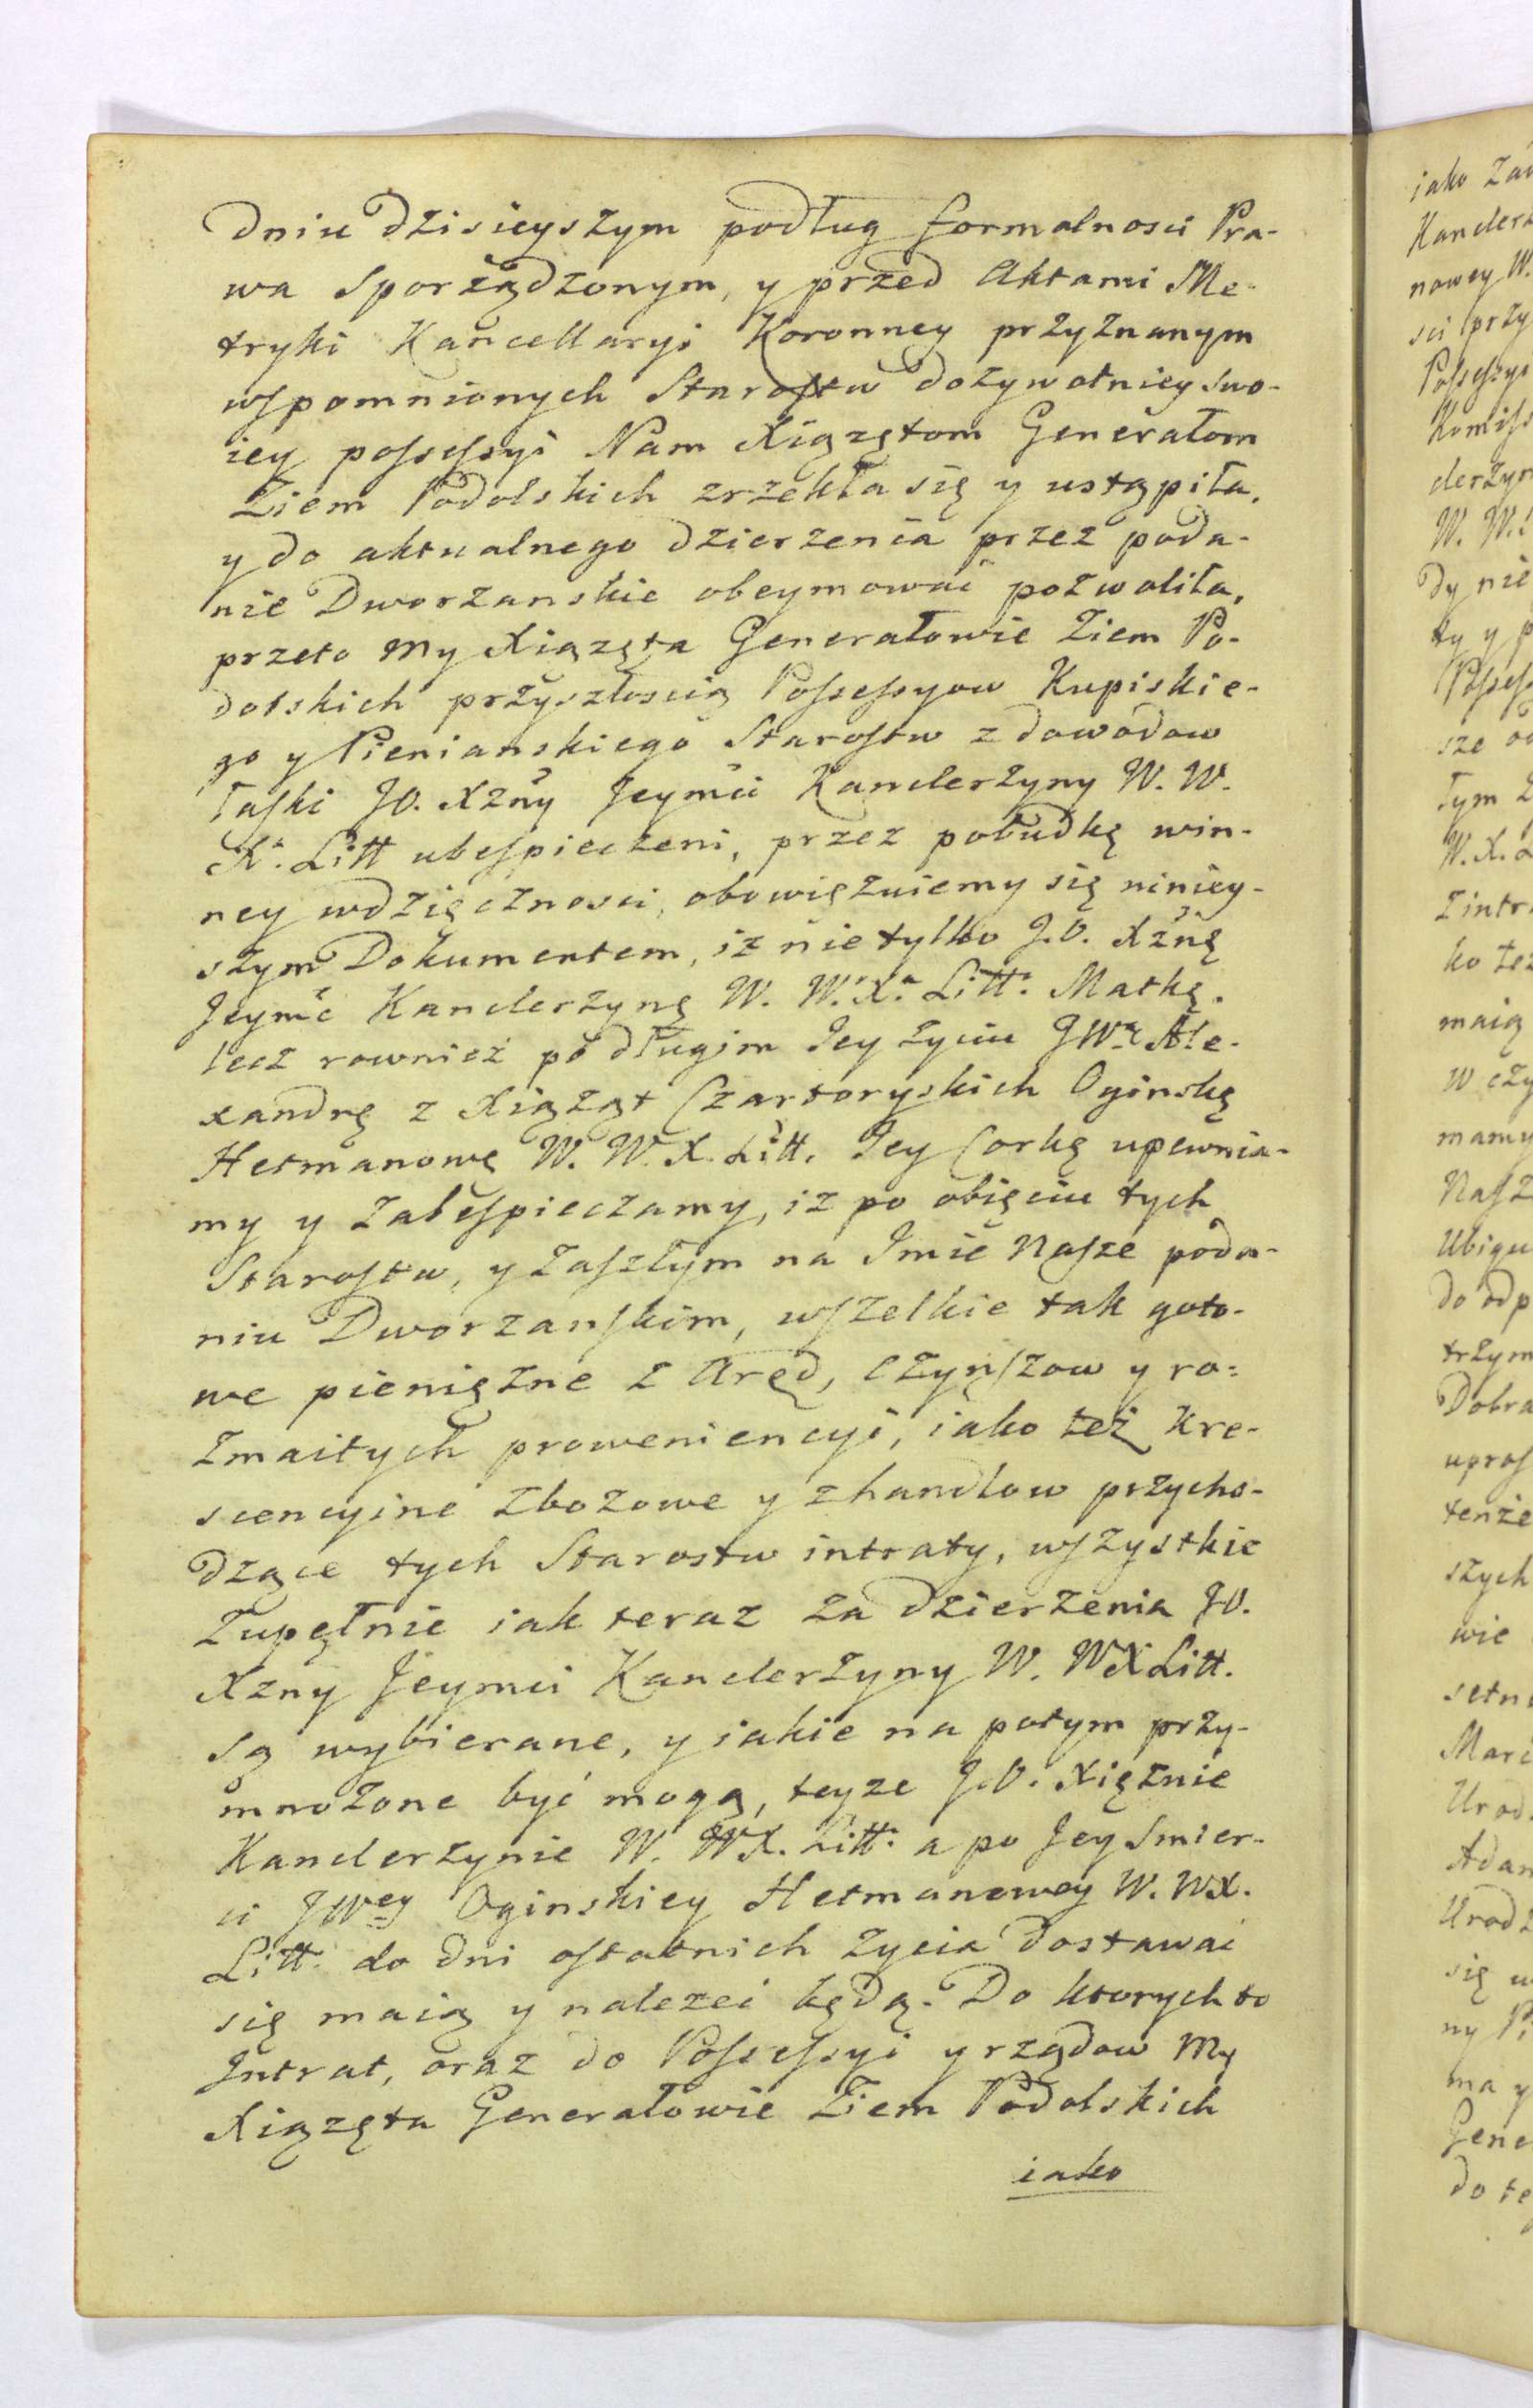 dniu dzisieyszym podług formalnosci Pra-
wa sporządzonym, y przed Aktami Me-
tryki Kancellaryi Koronney przyznanym
wspomnionych Starostw dożywotniey swo-
iey possessyi Nam Xiązętom Generałom
Ziem Podolskich zrzekła się y ustąpiła,
y do aktualnego dzierzenia przez poda-
nie Dworzanskie obeymować pozwoliła,
przeto my Xiązęta Generałowie Ziem Po-
dolskich przyszłoscią Possessyow Kupiskie-
go y Pienianskiego Starostw z dowodow
łaski JO. Xżny Jeymći Kanclerzyny W. W.
X. Litt ubespieczeni, przez pobudkę win-
ney wdzięcznosci, obowięzuiemy się niniey-
szym Dokumentem, iż nietylko J.O. Xżnę
Jeymć Kanclerzynę W. W. Xa. Litt. Matkę.
lecz rownież po długim Jey życiu JWą Ale-
xandrę z Xiążąt Czartoryskich Oginską
Hetmanowę W. W. X. Litt. Jey Corkę upewnia-
my y zabespieczamy, iż po obięciu tych
Starostw, y zaszłym na Imie Nasze poda-
niu Dworzanskim, wszelkie tak goto-
we pieniężne z Aręd, Czynszow y ro-
zmaitych proweniencyi, iako też kre-
scencyine zbożowe y z handlow przycho-
dzące tych Starostw intraty, wszystkie
zupełnie iak teraz za dzierzenia JO.
Xzny Jeymci Kanclerzyny W. WX Litt.
są wybierane, y iakie na potym przy-
mnożone być mogą, teyze J.O. Xiężnie
Kanclerzynie W. WX. Litt. a po Jey smier-
ci JWey Oginskiey Hetmanowey W. WX.
Litt. do dni ostatnich życia dostawać
się maią y nalezeć będą. Do ktorych to
Intrat, oraz do Possessyi y rządow My
Xiązęta Generałowie Ziem Podolskich
iako